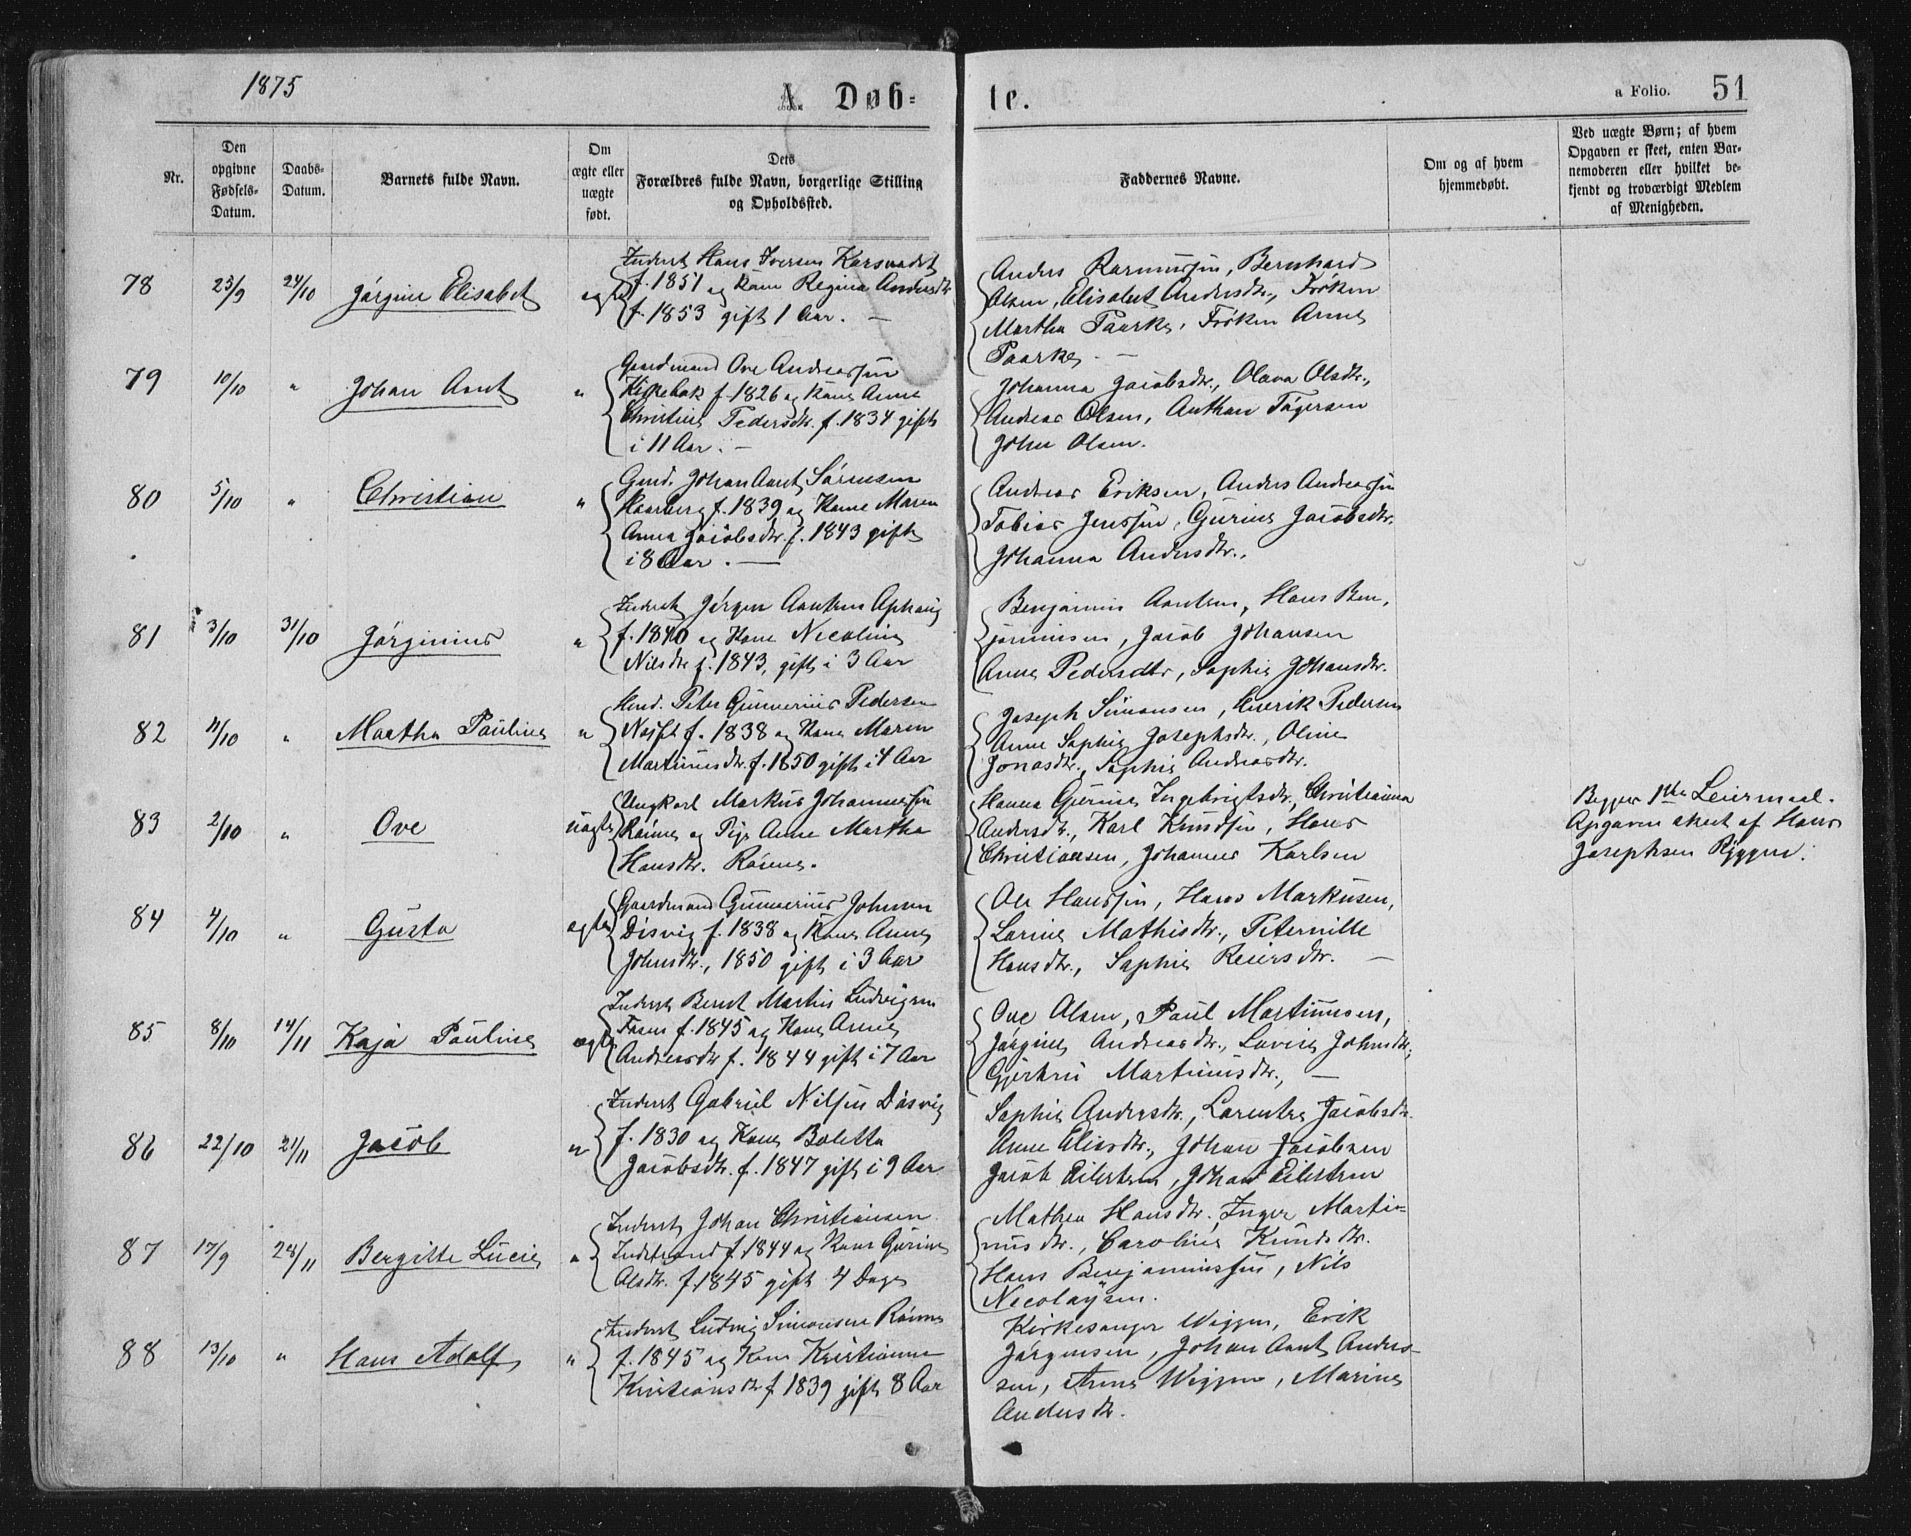 1875
A. Døb-
te.
a Folio. 51
Nr.
Den opgivne Fødsels-Datum.
Daabs-Datum.
Barnets fulde Navn.
Om ægte eller uægte født.
Dets Forældres fulde Navn, borgerlige Stilling og Opholdssted.
Faddernes Navne.
Om og af hvem hjemmedøbt.
Ved uægte Børn; af hvem Opgaven er skeet, enten Barnemoderen eller hvilket bekjendt og troværdigt Medlem af Menigheden.
78 23/9 24/10 Jørgine Elisabet ægte
Inderst Hans Iversen
f. 1851 og Kone Regina Andersdtr
f. 1853 gift 1 Aar. —
Anders Rasmussen, Bernhard
Olsen, Elisabet Andersdtr., Frøken
Martha Paaske, Frøken Anne
Paaske. —
79 10/10 " Johan Arnt "
Gaardmand Ove Andreassen
f. 1826 og Kone Anne
Christine Pedersdtr. f. 1834 gift
i 11 Aar. —
Johanna Jacobsdtr., Olava Olsdtr.,
Andreas Olsen, Anthon
John Olsen.
80 5/10 " Christian "
Gmd. Johan Arnt Sørensen
f. 1839 og Kone Maren
Anna Jacobsdtr. f. 1843 gift
i 8 Aar. —
Andreas Eriksen, Anders Andreassen
Tobias Jenssen, Gurine Jacobsdtr.
Johanna Andersdtr.,
81 3/10 31/10 Jørginius "
Inderst Jørgen Arntsen
f. 1840 og Kone Nicoline
Nilsdtr f. 1843, gift i 3 Aar
Benjamin Arntsen, Hans Ben,
jaminsen, Jacob Johansen
Anne Pedersdtr, Sophie Johansdtr.
82 11/10 " Martha Pauline "
Peter Gunnerius Pedersen
f. 1838 og Kone Maren
Martinusdtr. f. 1850 gift i 4 Aar
Joseph Simonsen, Henrik Pedersen
Anne Sophie Josephsdtr., Oline
Jonasdtr., Sophie Andreasdtr.
83 2/10 " Ove uægte
Ungkarl Markus Johannessen
og Pige Anne Martha
Hansdtr.
Hanna Gurine Ingebrigtsdtr, Christianna
Andersdtr., Karl Knudsen, Hans
Christiansen, Johannes Karlsen
Begges 1ste Leiermaal.
Opgaven skeet af Hans
Josephsen
84 4/10 " Gusta ægte
Gaardmand Gunnerius Johnsen
Disvig f. 1838 og Kone Anne
Johnsdtr., 1850 gift i 3 Aar
Ole Hanssen, Hans Markusen,
Lorine Mathisdtr., Peternille
Hansdtr., Sophie Reiersdtr. —
85 8/10 14/11 Kaja Pauline ægte
Inderst Bernt Martin Ludvigsen
f. 1845 og Kone Anne
Andreasdtr f. 1844 gift i 7 Aar
Ove Olsen, Paul Martinusen,
Jørgine Andreasdtr., Lovise Johnsdtr,
Gjertru Martinusdtr., —
86 22/10 21/11 Jacob "
Inderst Gabriel Nilsen Disvig
f. 1830 og Kone Boletta
Jacobsdtr. f. 1847 gift i 9 Aar
Sophie Andersdtr., Lorentze Jacobsdtr.
Anne Eliasdtr., Johan Jacobsen
Jacob Eilertsen, Johan Eilertsen
87 17/9 28/11 Bergitte Lucie "
Inderst Johan Christiansen
Indstrand f. 1844 og Kone Gurine
Olsdtr. f. 1845 gift 4 Dage
Mathea Hansdtr. Inger Marti-
nusdtr., Caroline Knudsdtr.
Hans Benjaminssen, Nils
Nicolaysen.
88 13/10 " Hans Adolf "
Inderst Ludvig Simonsen
f. 1845 og Kone Kristianne
Kristiansdtr f 1839 gift 8 Aar
Kirkesanger Wiggen, Erik
Jørgensen, Johan Arnt Anders-
sen, Anne Wiggen, Marine
Andersdtr.